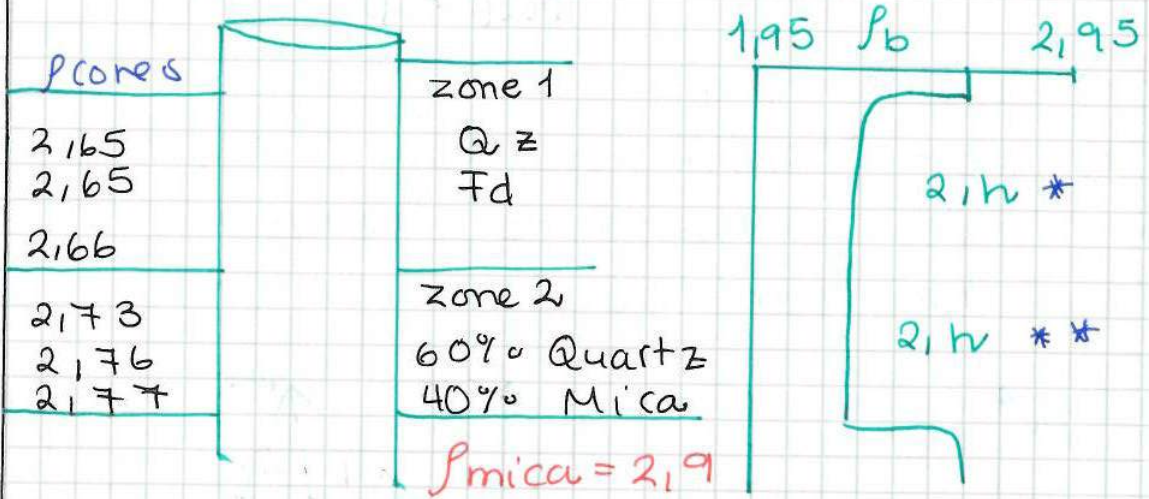 ρcores
2,65
2,65
2,66
2,73
2,76
2,77
zone 1
Qz
Fd
zone 2
60% Quartz
40% Mica
ρmica = 2,9
1,95 ρb 2,95
2,h *
2,h **